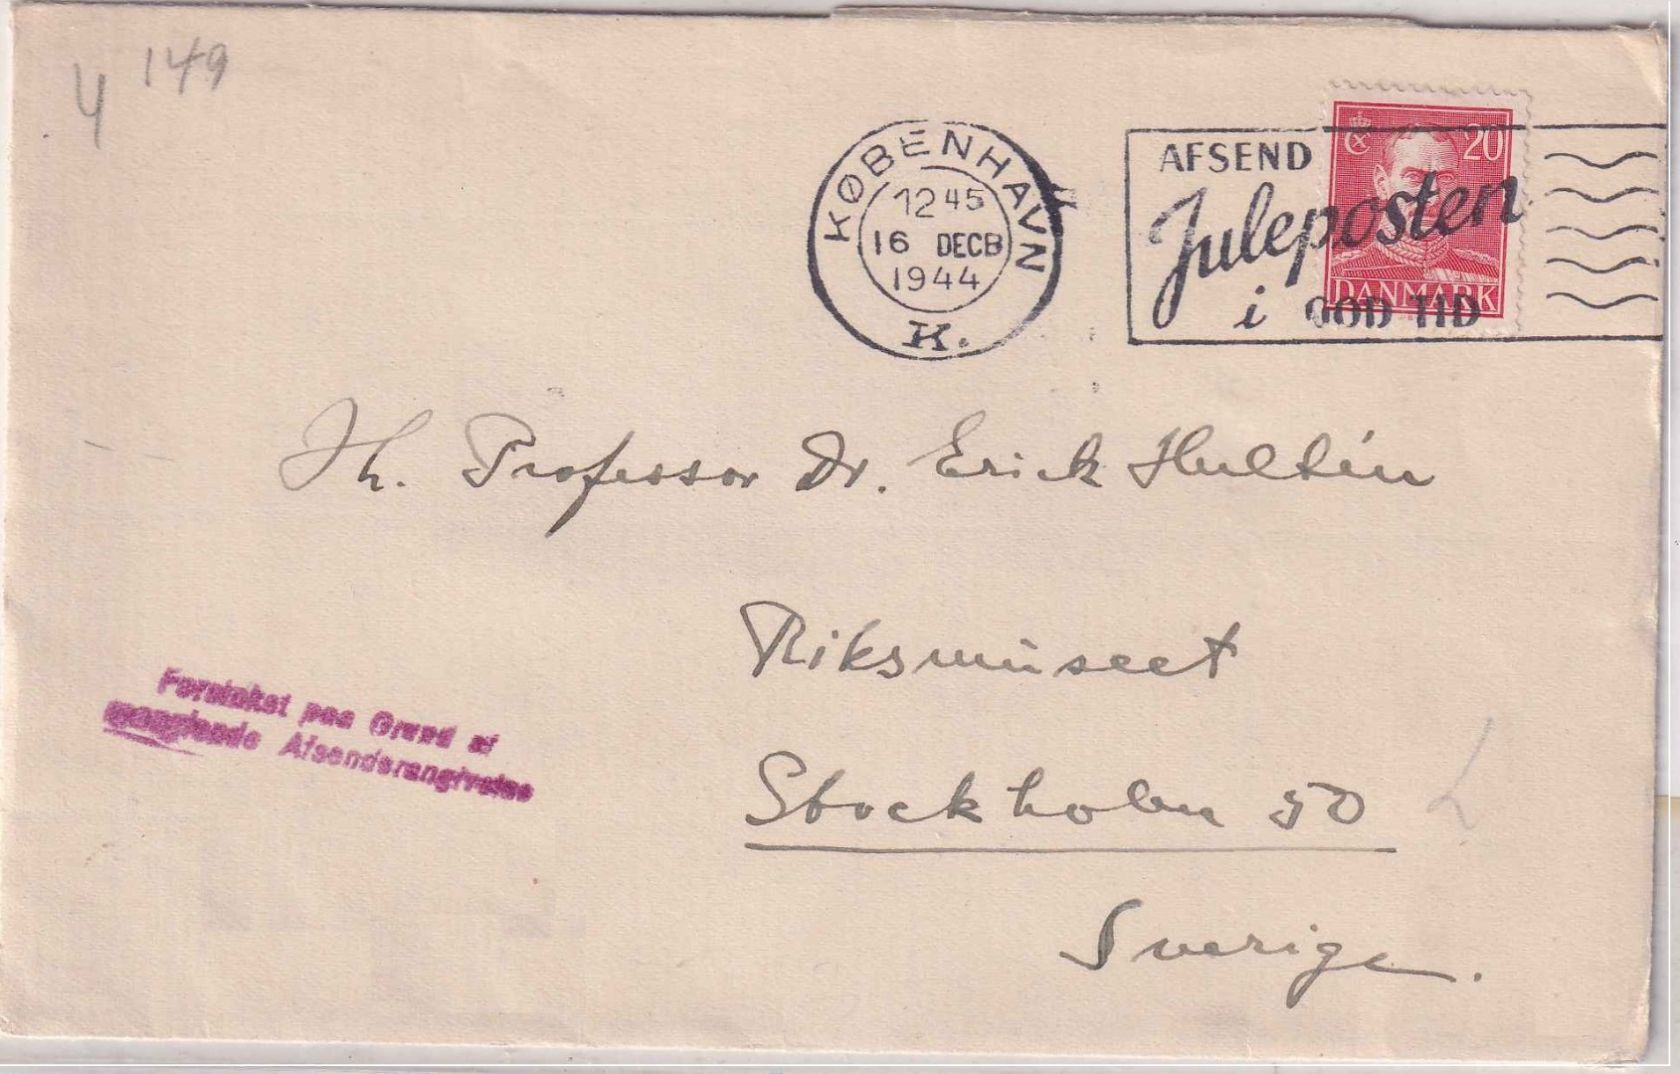 4 149
KØBENHAVN
12 45
16 DECB
1944
K.
AFSEND
Juleposten
i GOD TID
20
DANMARK
Hr. Professor Dr. Erick Hultén
Riksmúseet
Stockholm 50
Sverige.
Forsinket paa Grund af
manglende Afsenderangivelse